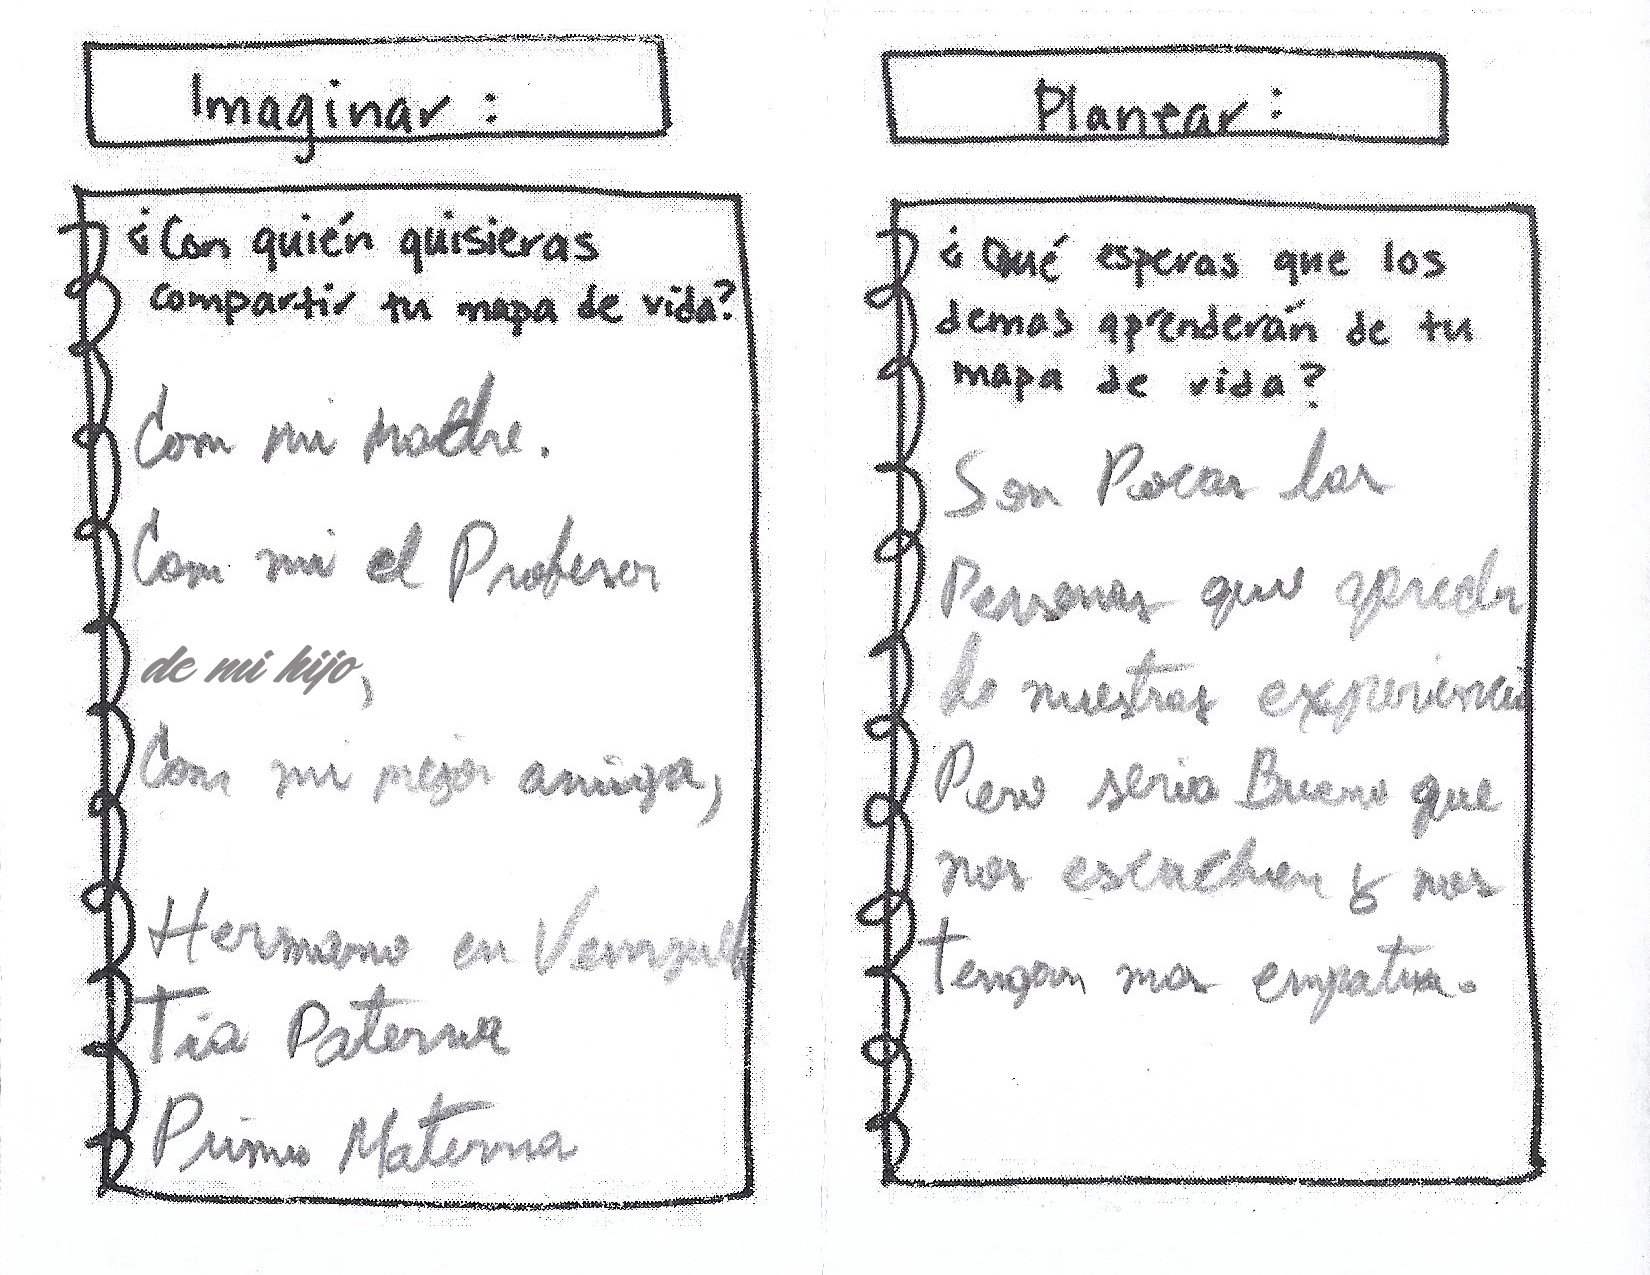 Imaginar :
¿Con quién quisieras
compartir tu mapa de vida?
Com mi madre.
Com mi el Profesor
de mi hijo,
Com mi mejor amiga,
Hermano en Venezuela
Tia Paterna
Primo Materna
Planear :
¿Qué esperas que los
demas aprenderán de tu
mapa de vida?
Son Pocas las
Personas que
de nuestras experiencia
Pero seria Bueno que
nos escuchen y nos
tengan mas empatia.